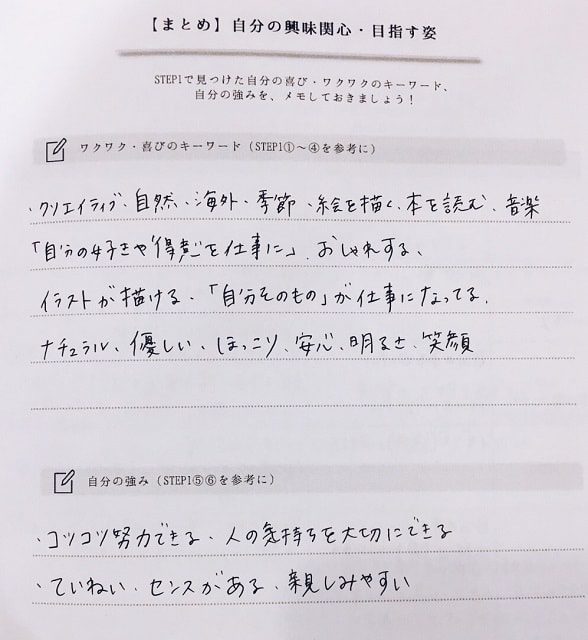 【まとめ】自分の興味関心・目指す姿
STEP1で見つけた自分の喜び・ワクワクのキーワード、
自分の強みを、メモしておきましょう！
ワクワク・喜びのキーワード（STEP1①〜④を参考に）
・クリエイティブ、自然、海外・季節、絵を描く、本を読む、音楽
「自分の好きや得意を仕事に」、おしゃれする、
イラストが描ける、「自分そのもの」が仕事になってる、
ナチュラル、優しい、ほっこり、安心、明るさ、笑顔
自分の強み（STEP1⑤⑥を参考に）
・コツコツ努力できる、人の気持ちを大切にできる
・ていねい、センスがある、親しみやすい